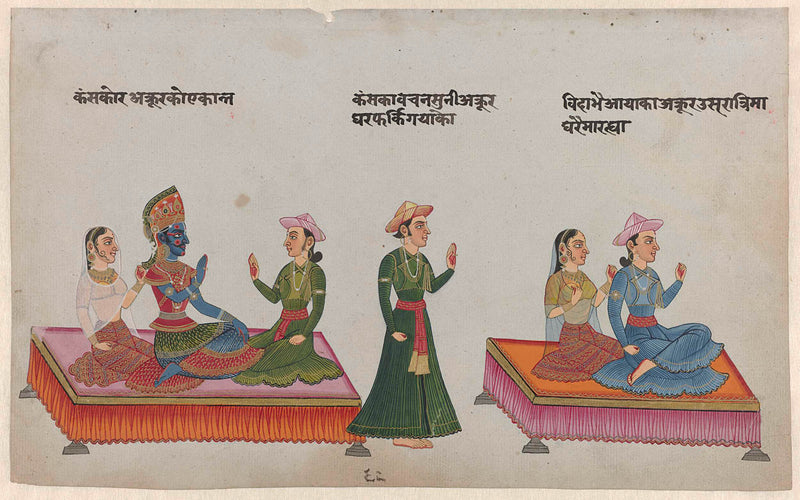 कंसकोर अक्रूरकोएकान्त
कंसकावचनसुनीअक्रूर
घरफर्किगयाका
विदाभैआयाकाअक्रूरउसरात्रिमा
घरैमारह्या